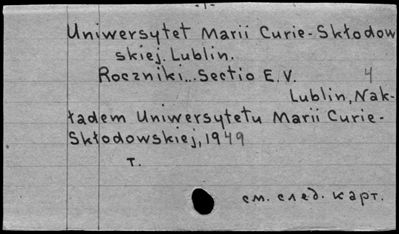 -1-
Uniwersytet Marii Curie-Skłodow
skiej. Lublin.
Roczniki... Sectio E.V. 4
Lublin, Nak-
ładem Uniwersytetu Marii Curie-
Skłodowskiej, 1949
т.
см. след. карт.